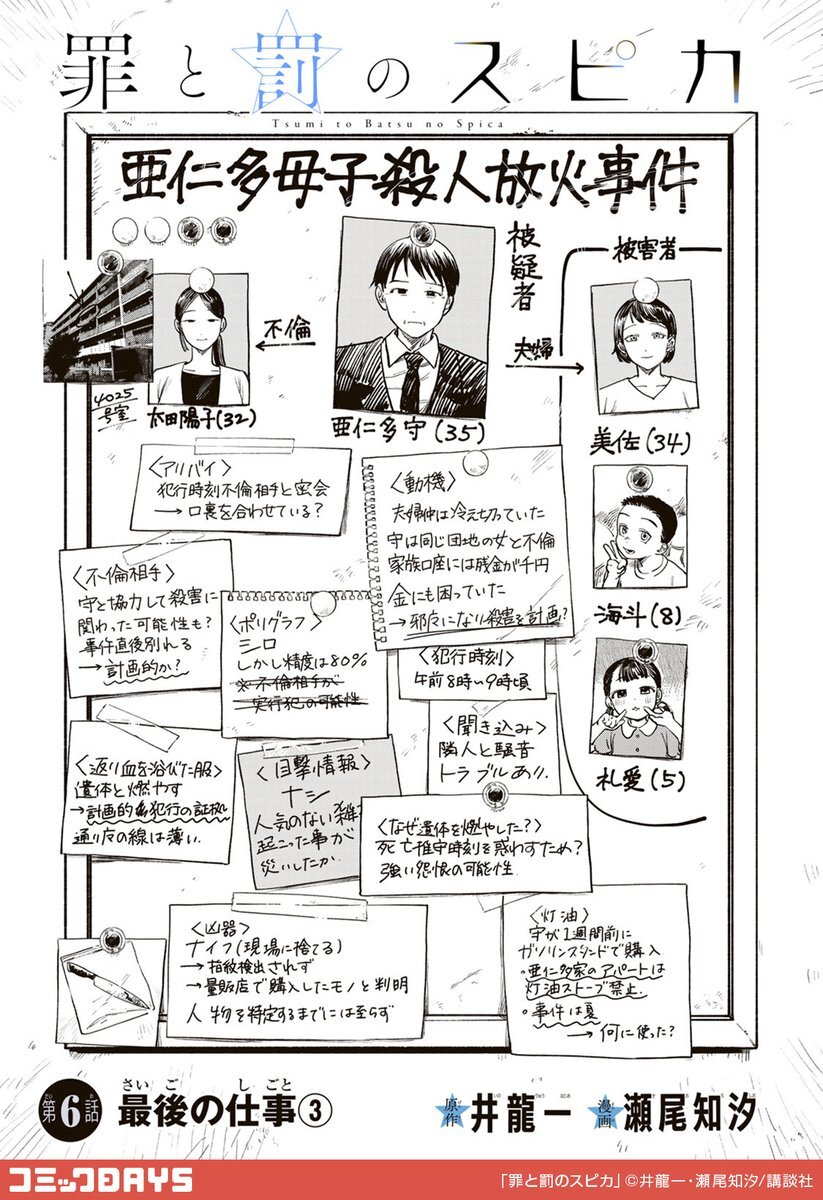 罪と罰のスピカ
Tsumi to Batsu no Spica
亜仁多母子殺人放火事件
被疑者
被害者
不倫
夫婦
4025
号室
太田陽子(32)
亜仁多守(35)
美佐(34)
海斗(8)
礼愛(5)
〈アリバイ〉
犯行時刻不倫相手と密会
→口裏を合わせている?
〈動機〉
夫婦仲は冷え切っていた
守は同じ団地の女と不倫
家族口座には残金が千円
金にも困っていた
→邪魔になり殺害を計画?
〈不倫相手〉
守と協力して殺害に
関わった可能性も?
事件直後別れる
→計画的か?
〈ポリグラフ〉
シロ
しかし精度は80%
※不倫相手が
実行犯の可能性
〈犯行時刻〉
午前8時〜9時頃
〈聞き込み〉
隣人と騒音
トラブルあり.
〈返り血を浴びた服〉
遺体と燃やす
→計画的な犯行の証拠
通り魔の線は薄い.
〈目撃情報〉
ナシ
人気のない
起こった事が
災いしたか.
〈なぜ遺体を燃やした?〉
死亡推定時刻を惑わすため?
強い怨恨の可能性
〈凶器〉
ナイフ(現場に捨てる)
→指紋検出されず
→量販店で購入したモノと判明
人物を特定するまでには至らず
〈灯油〉
守が1週間前に
ガソリンスタンドで購入
・亜仁多家のアパートは
灯油ストーブ禁止.
・事件は夏
→何に使った?
第6話
だい わ
最後の仕事③
さいご しごと
原作 井龍一
漫画 瀬尾知汐
コミックDAYS
「罪と罰のスピカ」©井龍一・瀬尾知汐/講談社